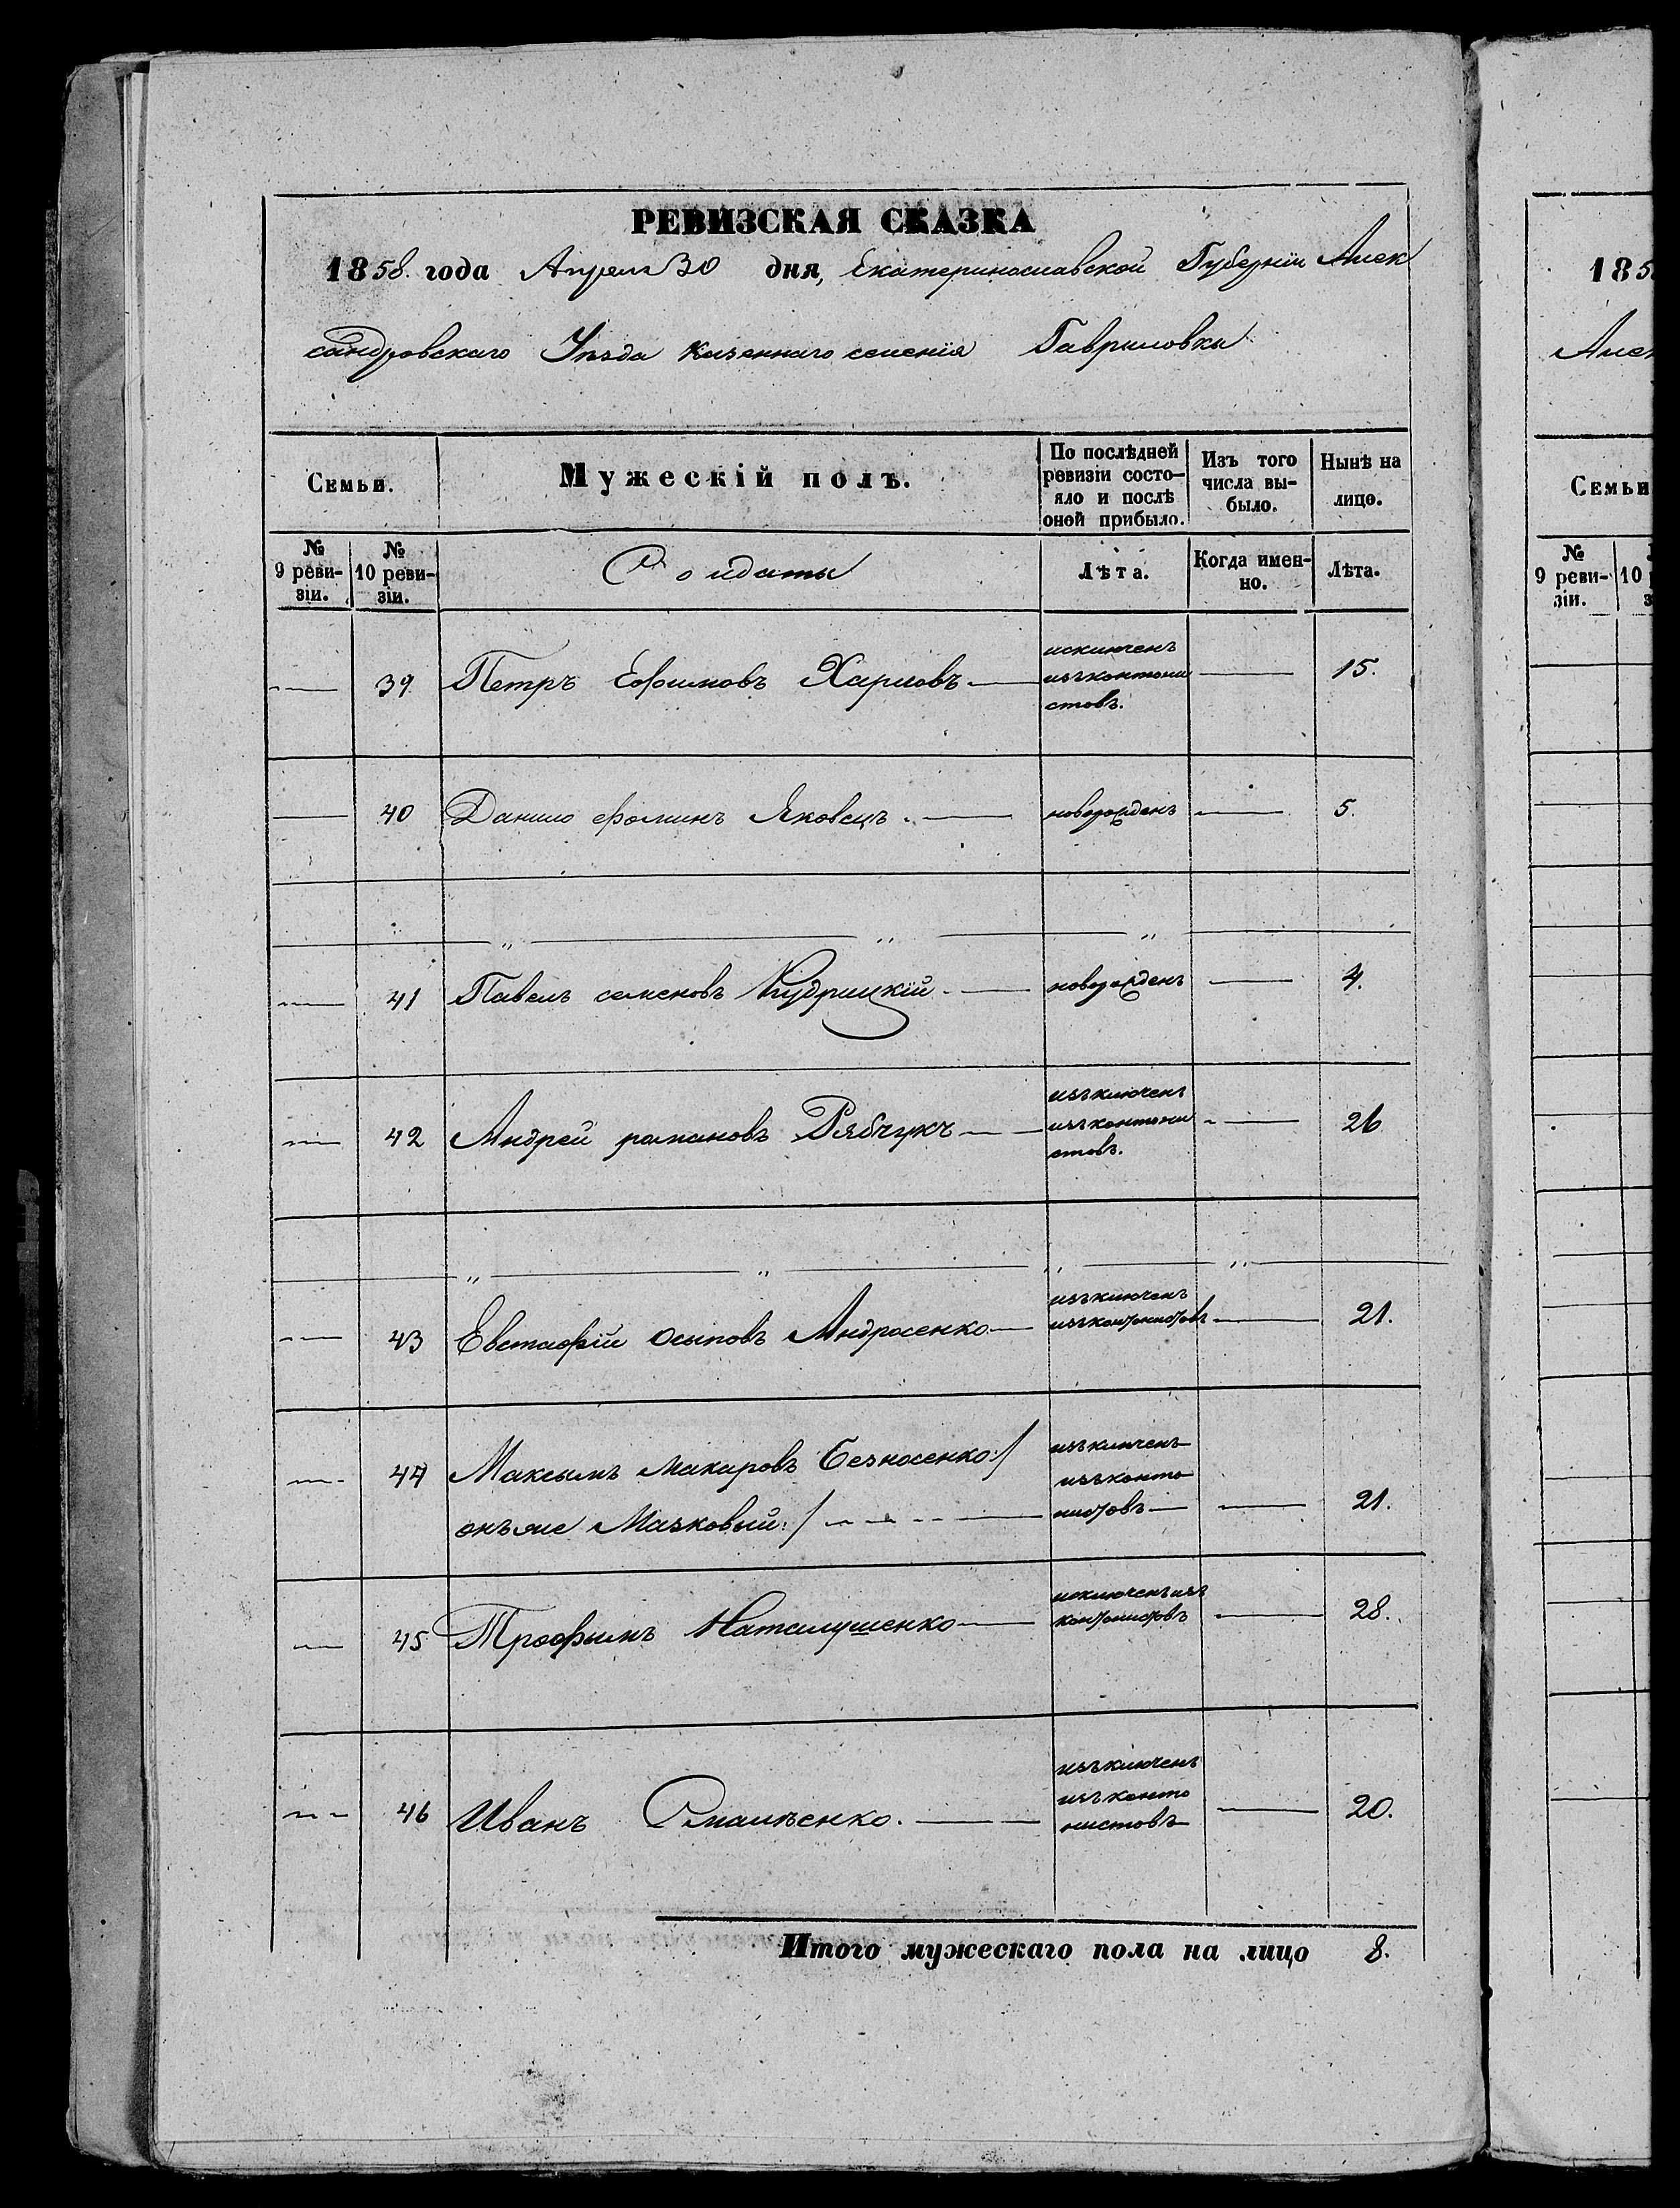 РЕВИЗСКАЯ СКАЗКА
1858. года Апреля 30 дня, Екатеринославской Губерніи Алек
сандровскаго Уѣзда казеннаго селенія Гавриловки
Семьи.
Мужескій полъ.
По послѣдней ревизіи состо-
яло и послѣ
оной прибыло.
Изъ того
числа вы-
было.
Нынѣ на
лицо.
№
9 реви-
зіи.
№
10 реви-
зіи.
Солдаты
Лѣта.
Когда имен-
но.
Лѣта.
39. Петръ Ефимовъ Харловъ — исключенъ — 15.
изъ контони
стовъ.
40 Данило фоминъ Яковецъ. — новорожденъ — 5.
41 Павелъ семеновъ Кудрицкій — новорожденъ — 4.
42 Андрей романовъ Рябчукъ — изъключенъ — 26
изъ контони
стовъ.
43 Евстафій осыповъ Андросенко — изъключенъ — 21.
изъ контонистовъ
44 Максымъ макаровъ Безносенко:/ изъключенъ
изъ конто
онъ же Мазковый:/ — нистовъ — 21.
45 Трофымъ — исключенъ изъ — 28.
контонистовъ
46 Иванъ — изъключенъ — 20.
изъ конто
нистовъ
Итого мужескаго пола на лицо 8.
185
Алек
Семьи
№
9 реви-
зіи.
10